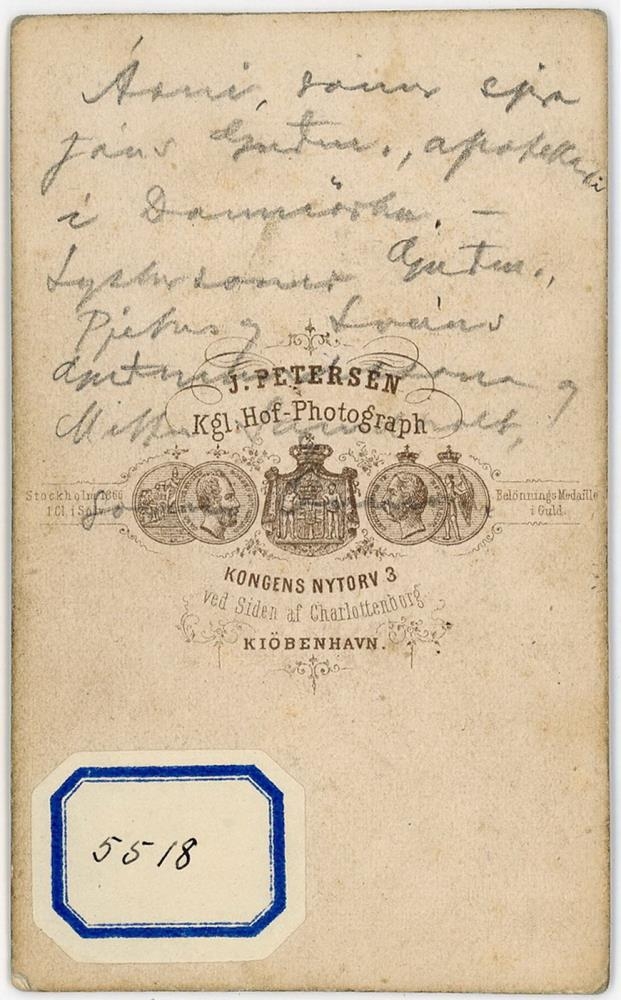 Árni, sonur sjra
Jóns Guðm., apotekari
i Danmörku. –
Systursonur Guðm.,
Pjeturs og
og
J. PETERSEN
Kgl. Hof-Photograph
Stockholm 1866
1 Cl. i Sölv
Belönnings Medaille
i Guld.
KONGENS NYTORV 3
ved Siden af Charlottenborg
KIÖBENHAVN.
5518